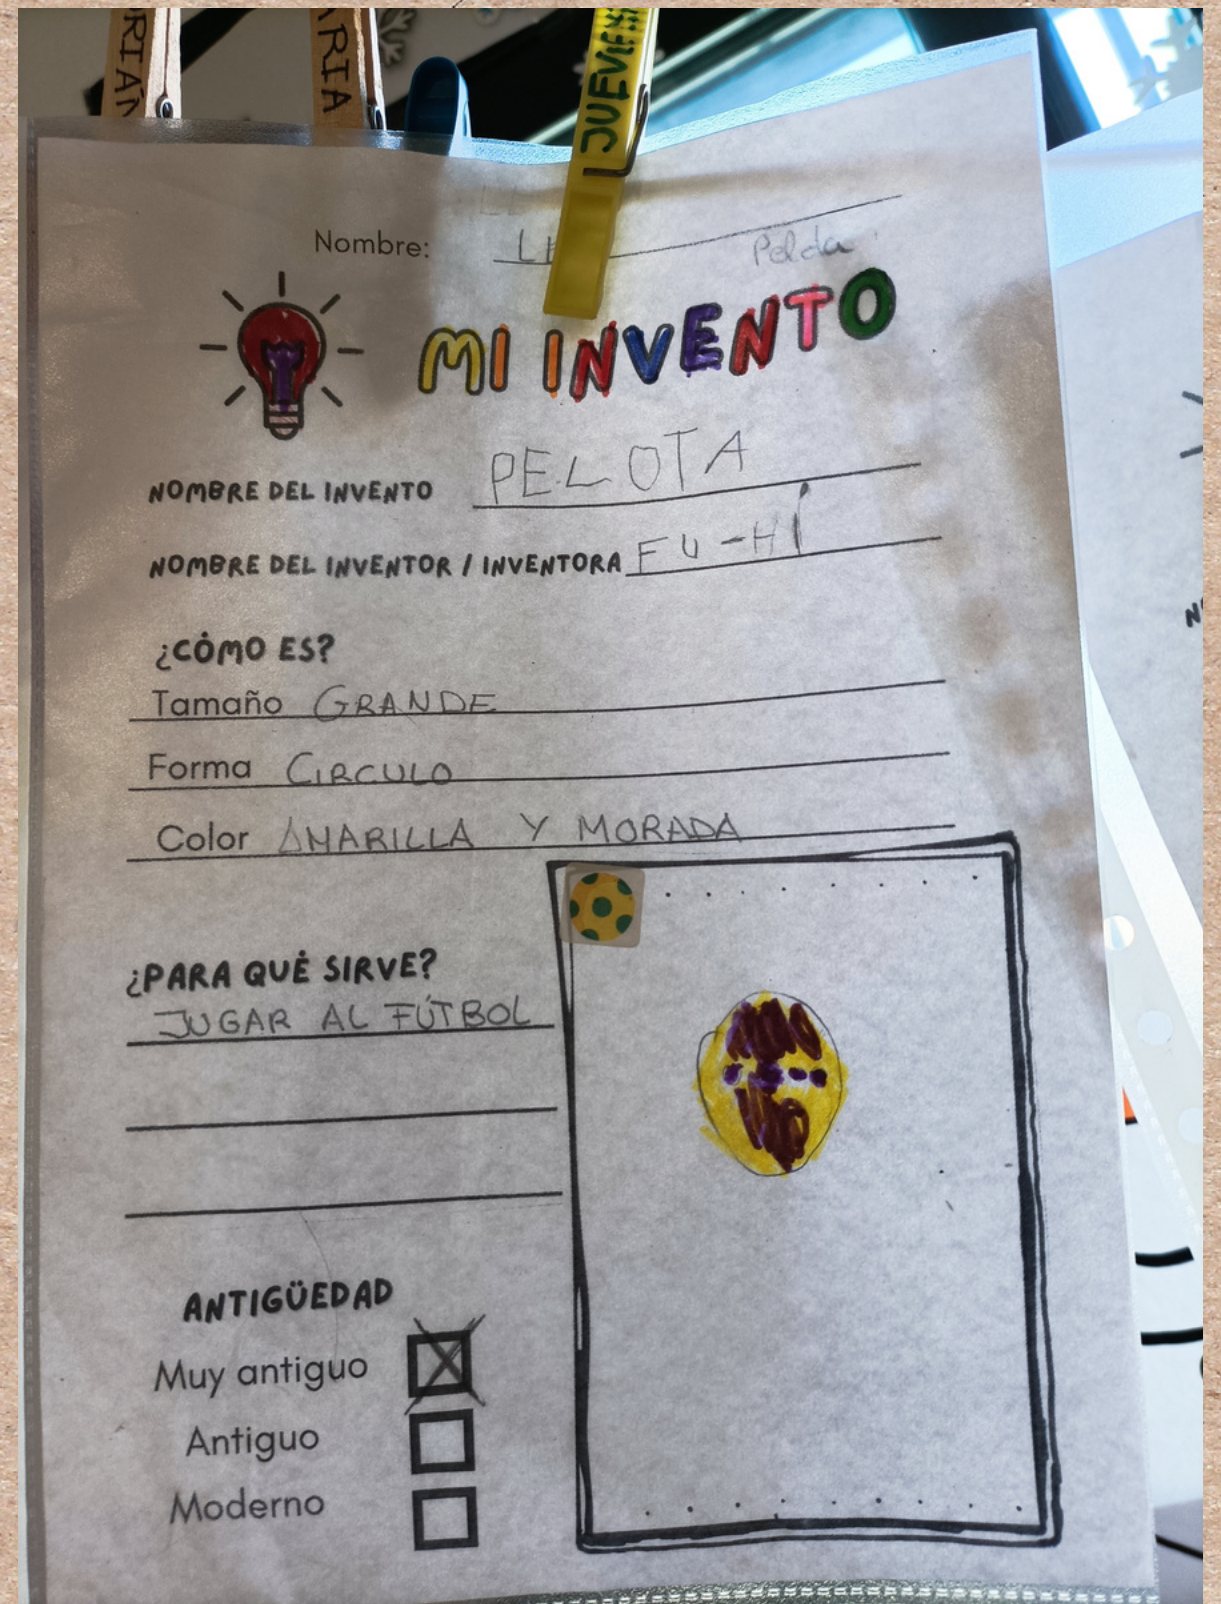 ARIA
JUEVES
Nombre:
MI INVENTO
NOMBRE DEL INVENTO PELOTA
NOMBRE DEL INVENTOR / INVENTORA FU-HÍ
¿CÓMO ES?
Tamaño GRANDE
Forma CIRCULO
Color AMARILLA Y MORADA
¿PARA QUÉ SIRVE?
JUGAR AL FÚTBOL
ANTIGÜEDAD
Muy antiguo
Antiguo
Moderno